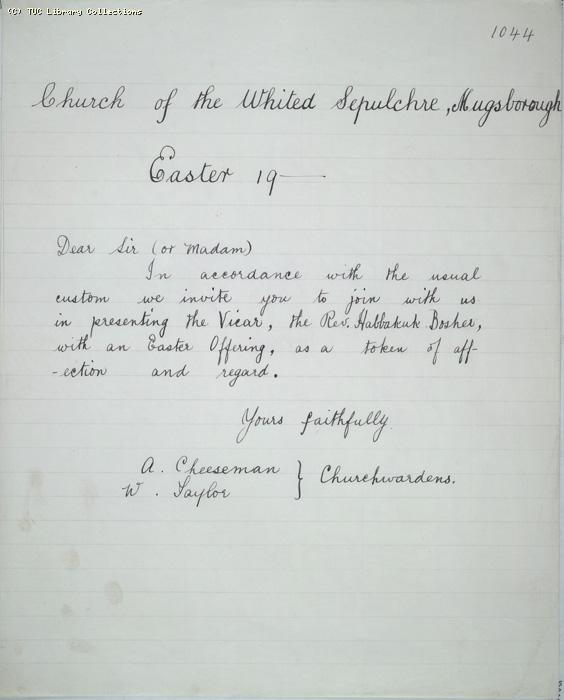 (C) TUC Library Collections
1044
Church of the Whited Sepulchre, Mugsborough
Easter 19—
Dear Sir (or Madam)
In accordance with the usual
custom we invite you to join with us
in presenting the Vicar, the Rev. Habbakuk Bosher,
with an Easter Offering, as a token of aff-
-ection and regard.
Yours faithfully
A. Cheeseman
W. Taylor } Churchwardens.